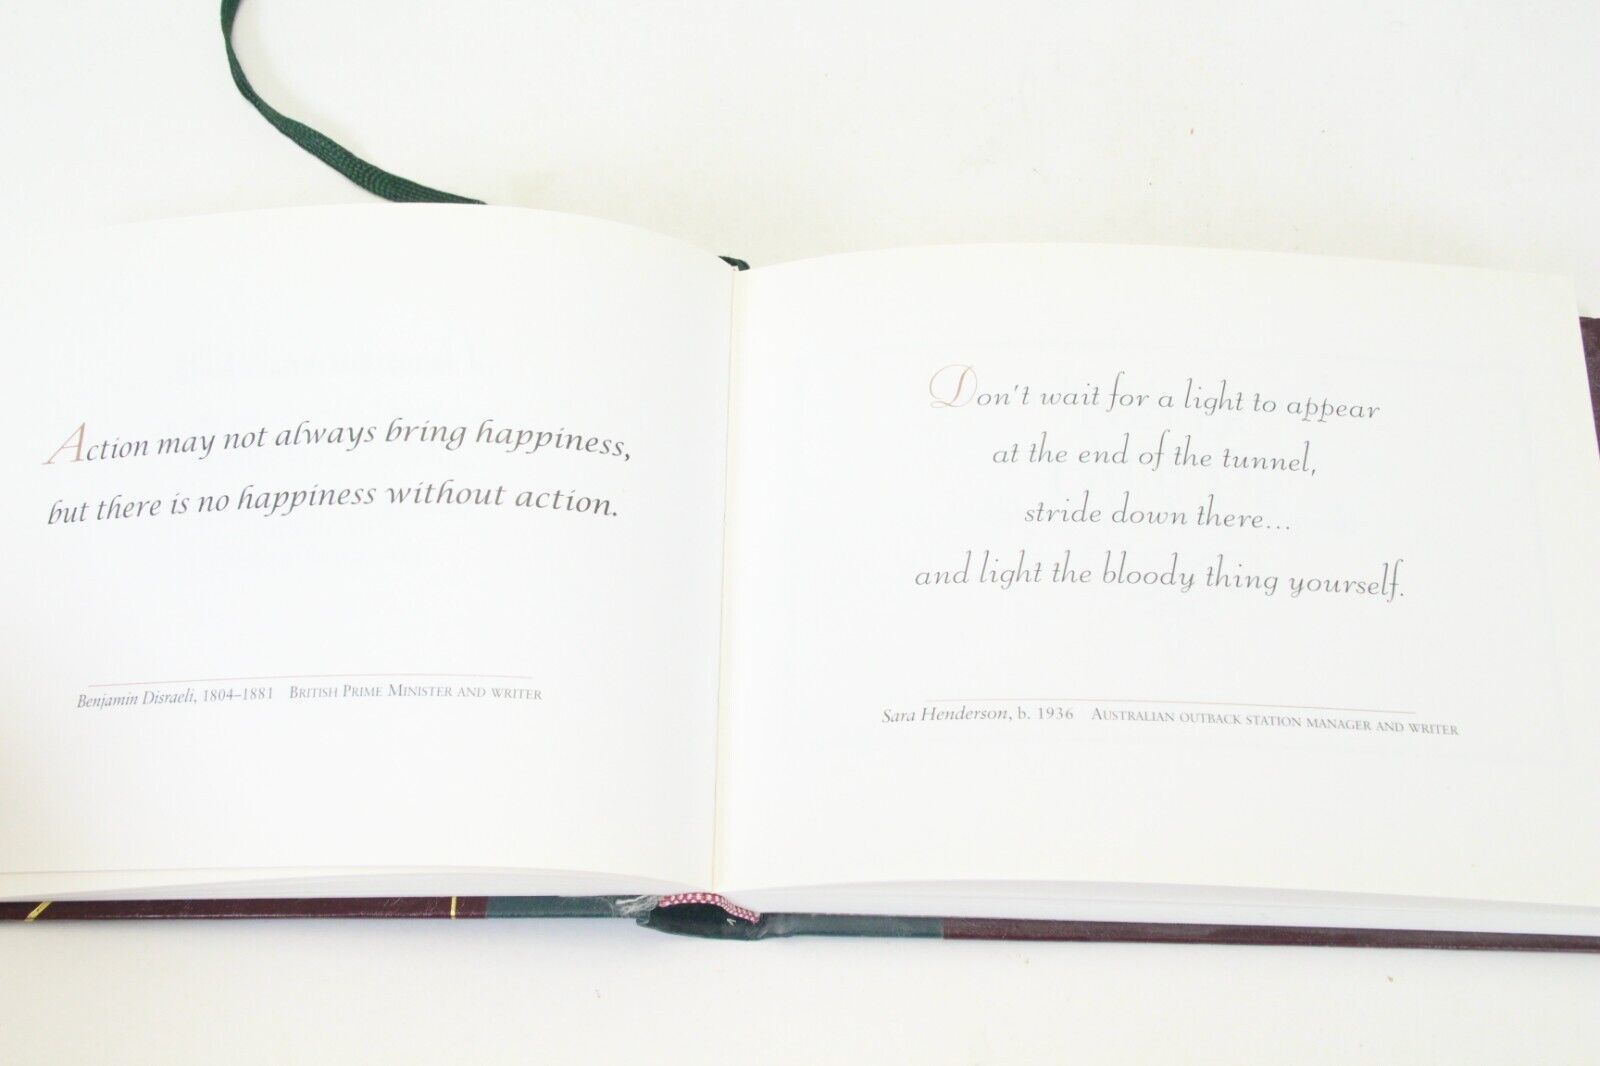 Action may not always bring happiness,
but there is no happiness without action.
Benjamin Disraeli, 1804–1881 BRITISH PRIME MINISTER AND WRITER
Don't wait for a light to appear
at the end of the tunnel,
stride down there...
and light the bloody thing yourself.
Sara Henderson, b. 1936 AUSTRALIAN OUTBACK STATION MANAGER AND WRITER